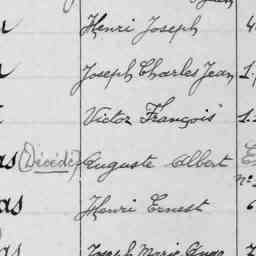 Henri Joseph
Joseph Charles Jean
Victor François
as (Décédé) Auguste Albert
as Henri Ernest
as Joseph Marie Ange